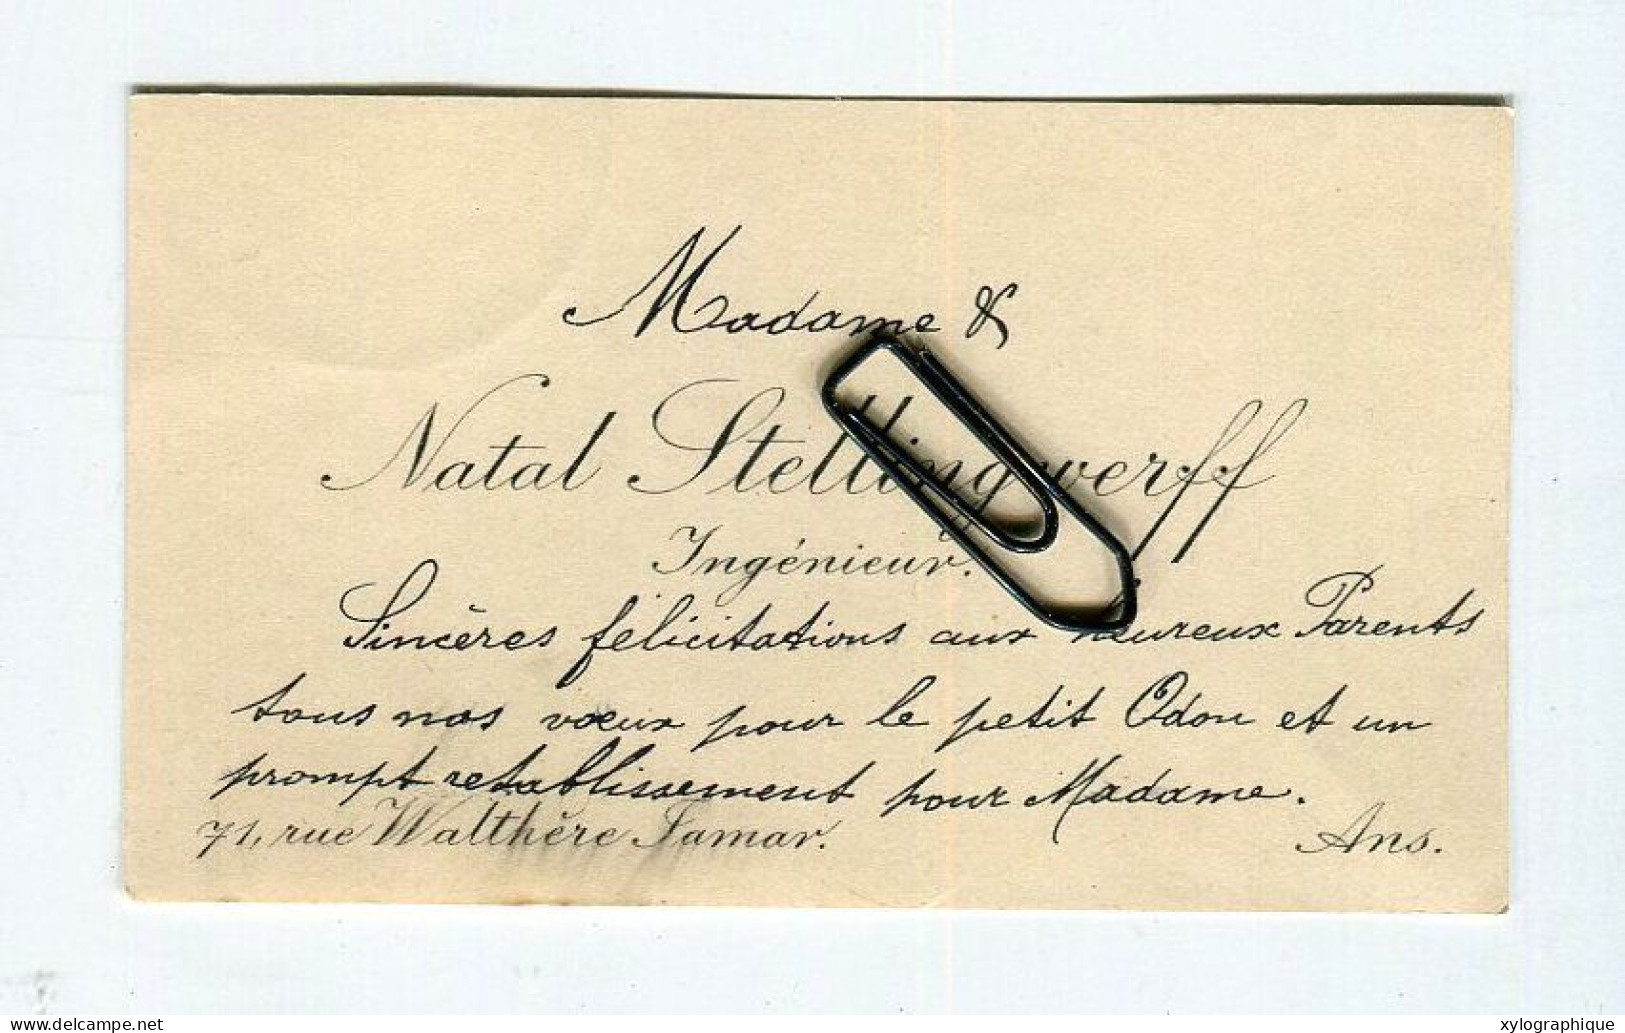 Madame &
Natal Stellingwerff
Ingénieur.
Sincères félicitations aux heureux Parents
tous nos vœux pour le petit Odon et un
prompt retablissement pour Madame.
71, rue Walthère Jamar. Ans.
delcampe.net
xylographique